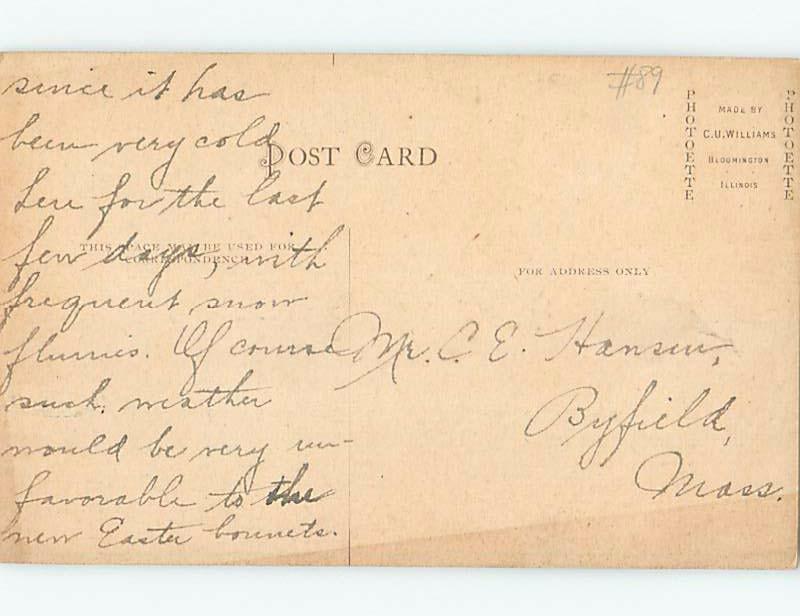 since it has
been very cold
here for the last
few days, with
frequent snow
flurries. Of course
such weather
would be very un-
favorable to the
new Easter bonnets.
#89
POST CARD
PHOTOETTE
MADE BY
C.U. WILLIAMS
BLOOMINGTON
ILLINOIS
PHOTOETTE
THIS SPACE MAY BE USED FOR
CORRESPONDENCE
FOR ADDRESS ONLY
Mr. C. E. Hansen,
Byfield,
Mass.